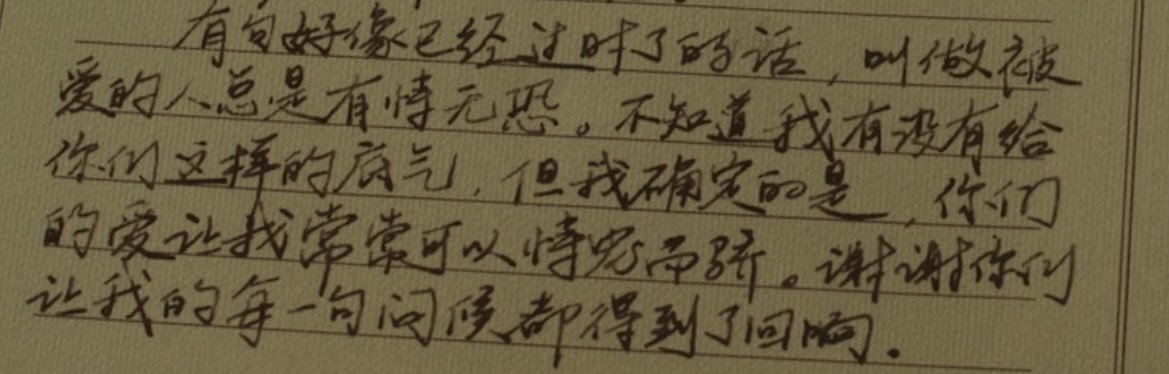 有句好像已经过时了的话，叫做被
爱的人总是有恃无恐。不知道我有没有给
你们这样的底气，但我确定的是，你们
的爱让我常常可以恃宠而骄。谢谢你们
让我的每一句问候都得到了回响.